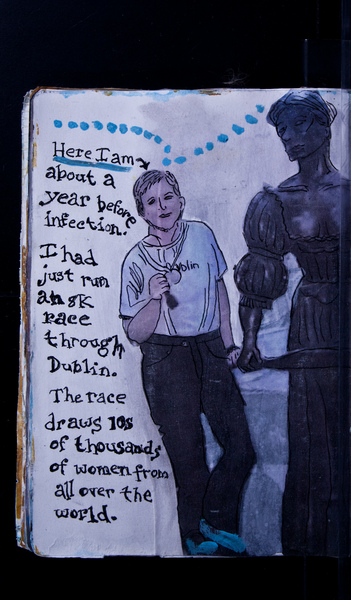 Here I am
about a
year before
infection.
I had
just run
an 8K
race
through
Dublin.
The race
draws 10s
of thousands
of women from
all over the
world.